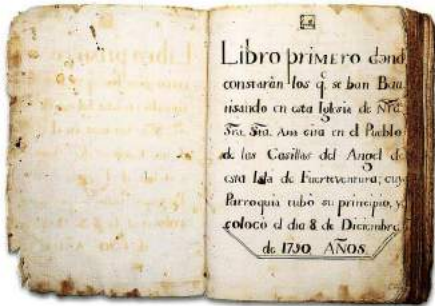 Libro primero dond
constarán los q̃. se ban Bau
tisando en esta Iglesia de Ñra.
Srã. Stã. Ana cita en el Pueblo
de las Casillas del Angel de
esta Isla de Fuerteventura; cuy
Parroquia tubo su principio, y
colocó el dia 8 de Diciembre
de 1790 AÑOS.